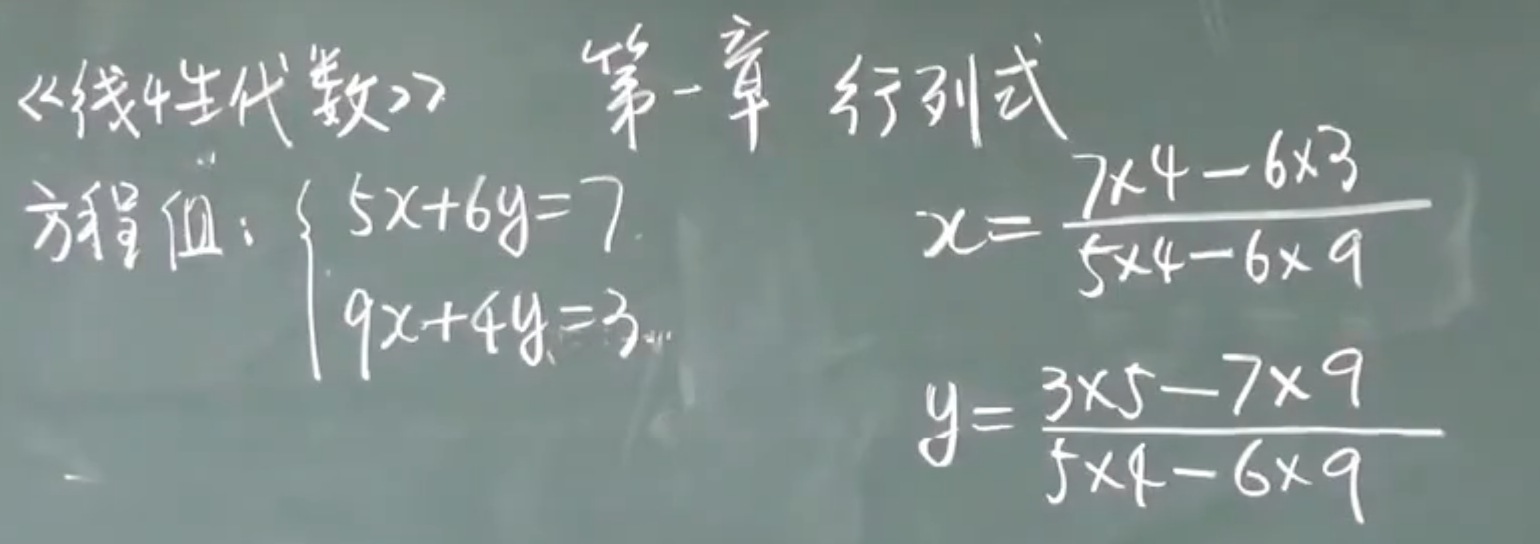 《线性代数》 第一章 行列式
方程组: { 5x+6y=7
9x+4y=3
x= 7×4-6×3 / 5×4-6×9
y= 3×5-7×9 / 5×4-6×9